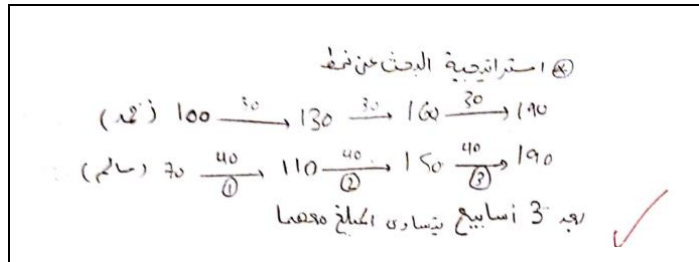 ⊛ استراتيجية البحث عن نمط
(محمد) 100 30→ 130 30→ 160 30→ 190
(سالم) 70 40→① 110 40→② 150 40→③ 190
بعد 3 أسابيع يتساوى المبلغ معهما